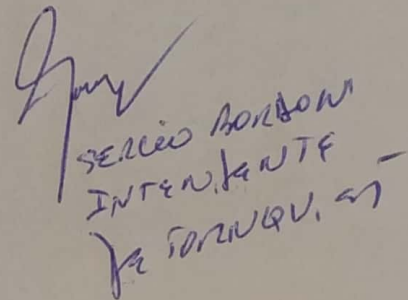 SERGIO BORDONI
INTENDENTE
DE TORNQUIST